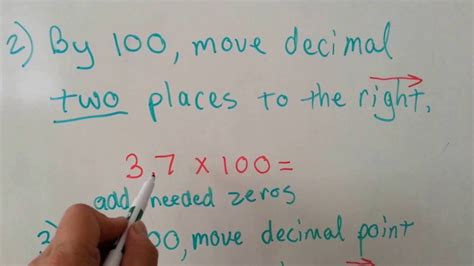 2) By 100, move decimal
two places to the right.
3.7 x 100 =
add needed zeros
move decimal point